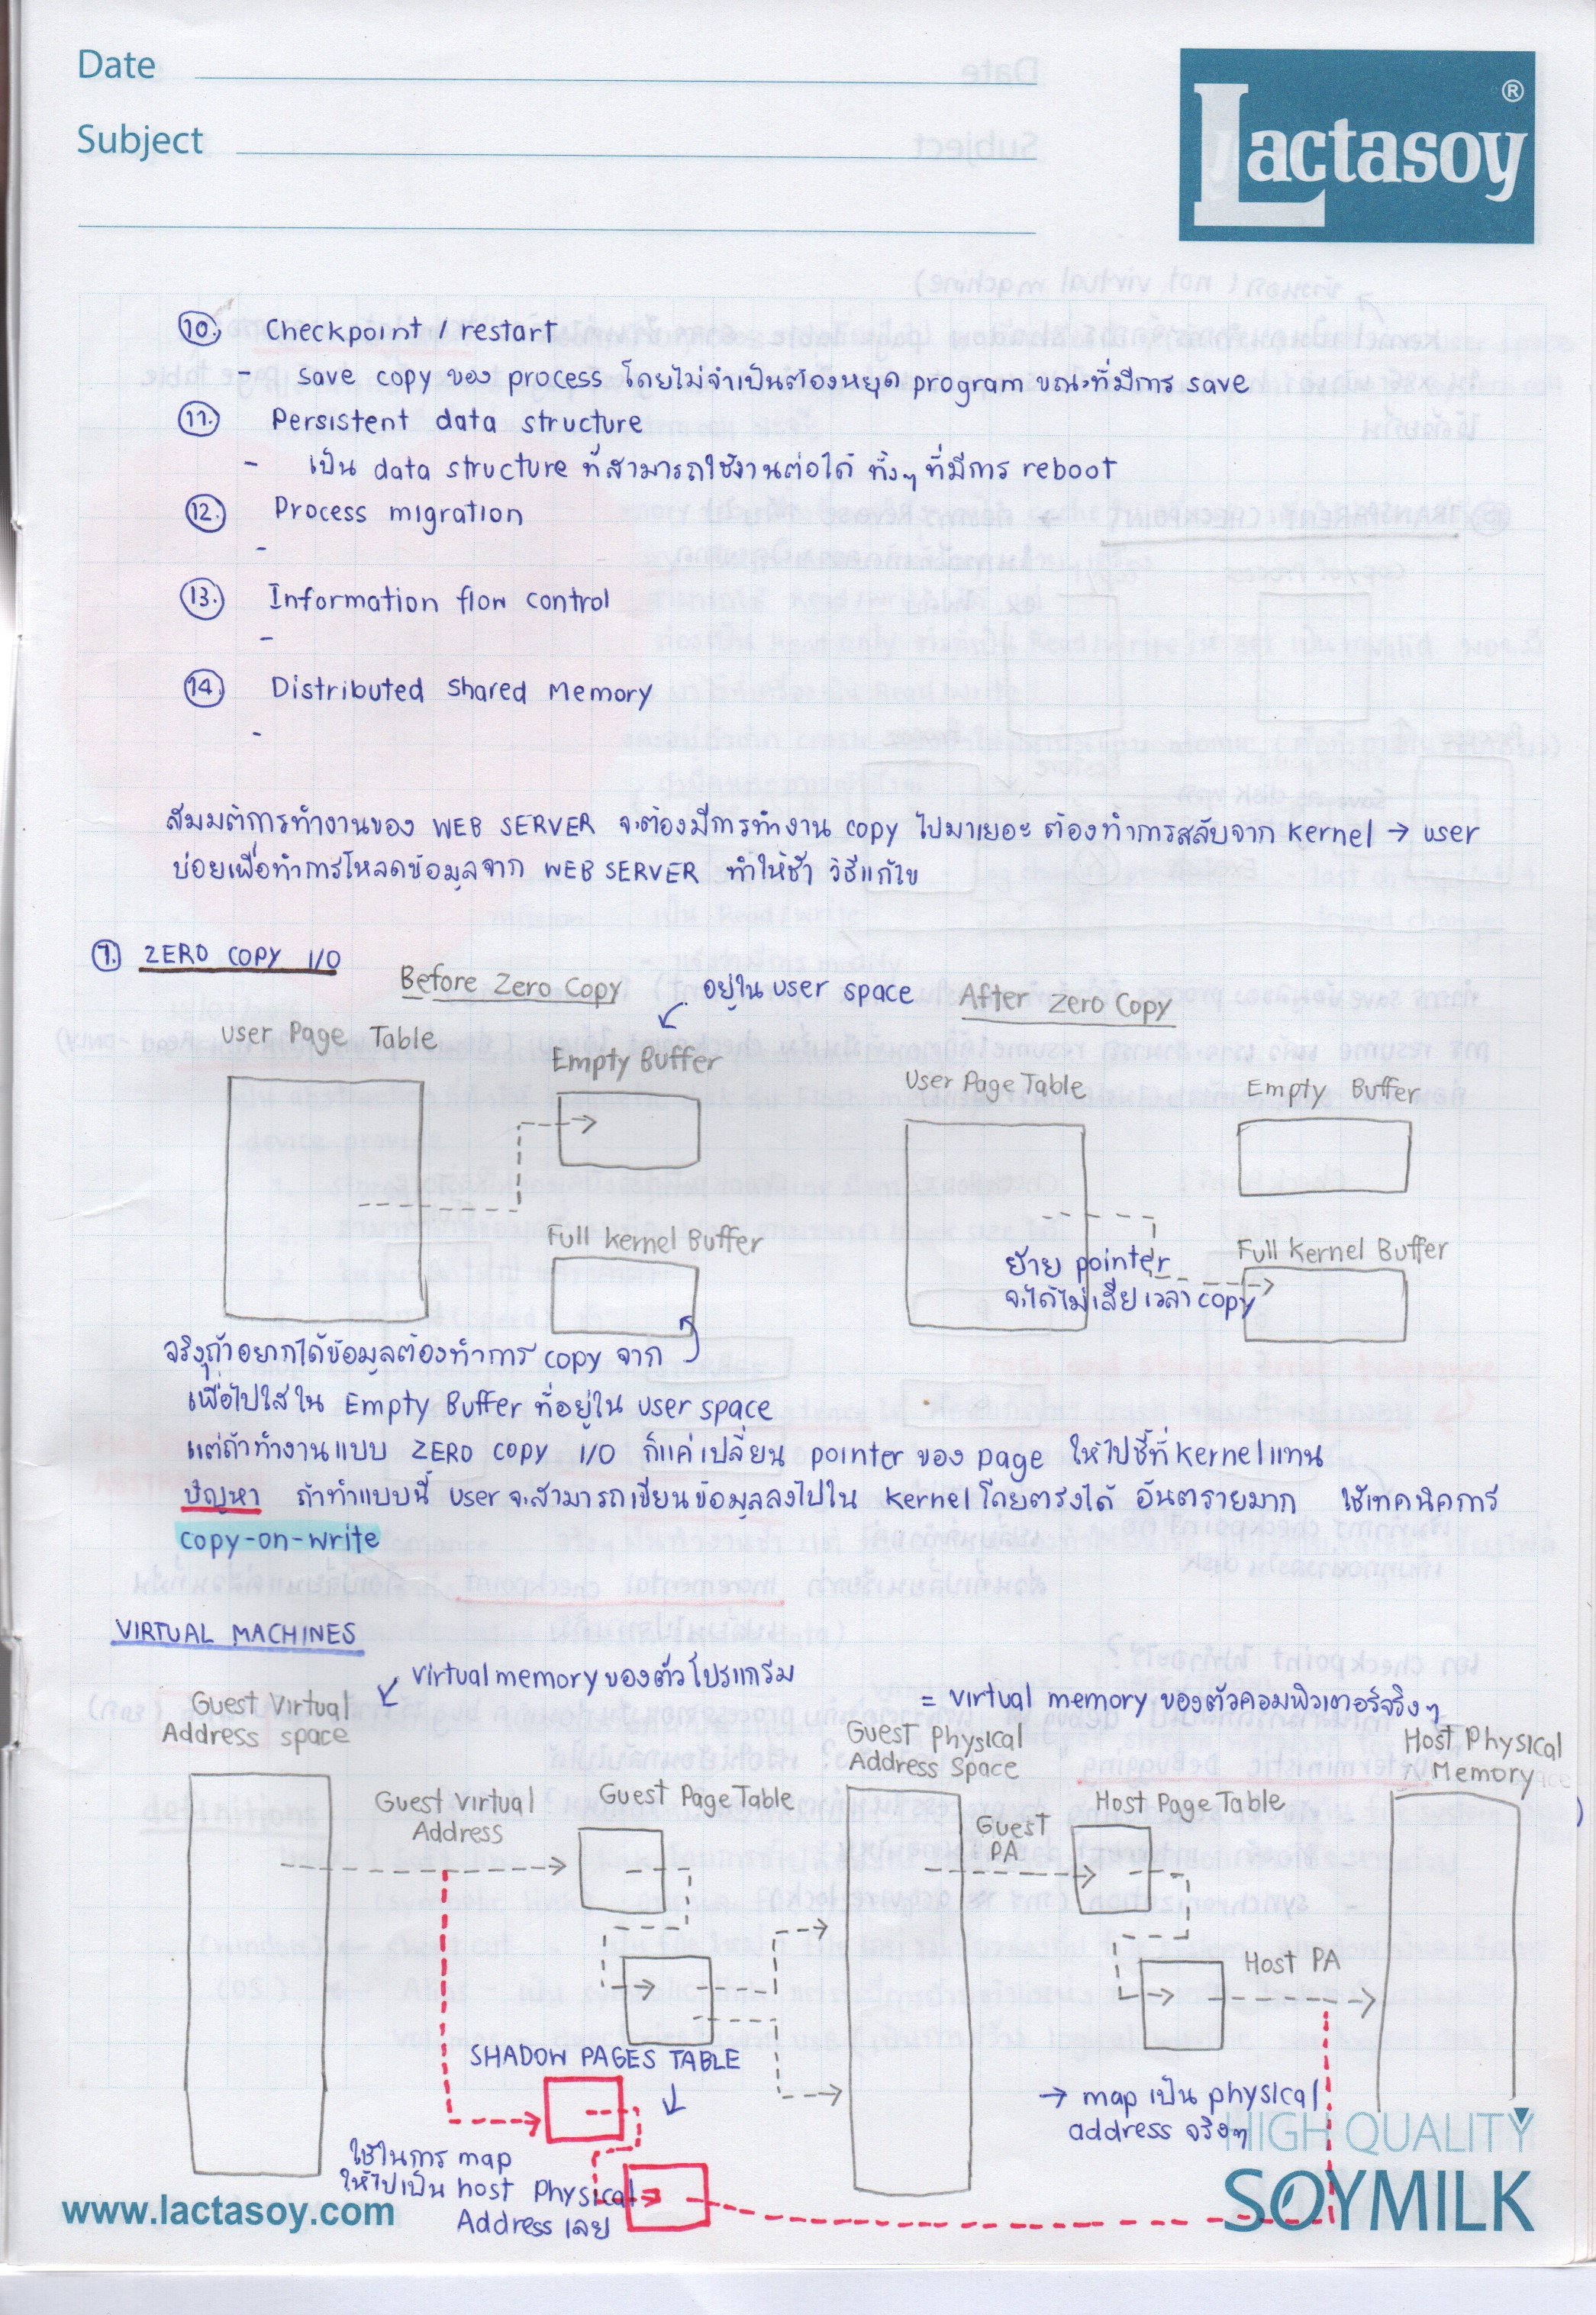 Date
Subject
Lactasoy ®
10. Checkpoint / restart
- save copy ของ process โดยไม่จำเป็นต้องหยุด program ขณะที่มีการ save
11. Persistent data structure
- เป็น data structure ที่สามารถใช้งานต่อได้ ทั้งๆ ที่มีการ reboot
12. Process migration
-
13. Information flow control
-
14. Distributed shared memory
-
สมมติการทำงานของ WEB SERVER จะต้องมีการทำงาน copy ไปมาเยอะ ต้องทำการสลับจาก kernel → user
บ่อยเพื่อทำการโหลดข้อมูลจาก WEB SERVER ทำให้ช้า วิธีแก้ไข
1. ZERO COPY I/O
Before Zero Copy
อยู่ใน user space
After Zero Copy
User Page Table
Empty Buffer
User Page Table
Empty Buffer
Full Kernel Buffer
Full Kernel Buffer
ย้าย pointer
จะได้ไม่เสียเวลา copy
จริงๆถ้าอยากได้ข้อมูลต้องทำการ copy จาก
เพื่อไปใส่ใน Empty Buffer ที่อยู่ใน user space
แต่ถ้าทำงานแบบ ZERO COPY I/O ก็แค่เปลี่ยน pointer ของ page ให้ไปชี้ที่ kernel แทน
ปัญหา ถ้าทำแบบนี้ user จะสามารถเขียนข้อมูลลงไปใน kernel โดยตรงได้ อันตรายมาก ใช้เทคนิคการ
copy-on-write
VIRTUAL MACHINES
virtual memory ของตัวโปรแกรม
= virtual memory ของตัวคอมพิวเตอร์จริงๆ
Guest Virtual
Address space
Guest Physical
Address Space
Host Physical
Memory
Guest Virtual
Address
Guest Page Table
Guest
PA
Host Page Table
Host PA
SHADOW PAGES TABLE
→ map เป็น physical
address จริงๆ
ใช้ในการ map
ให้ไปเป็น host Physical
Address เลย
www.lactasoy.com
HIGH QUALITY
SOYMILK